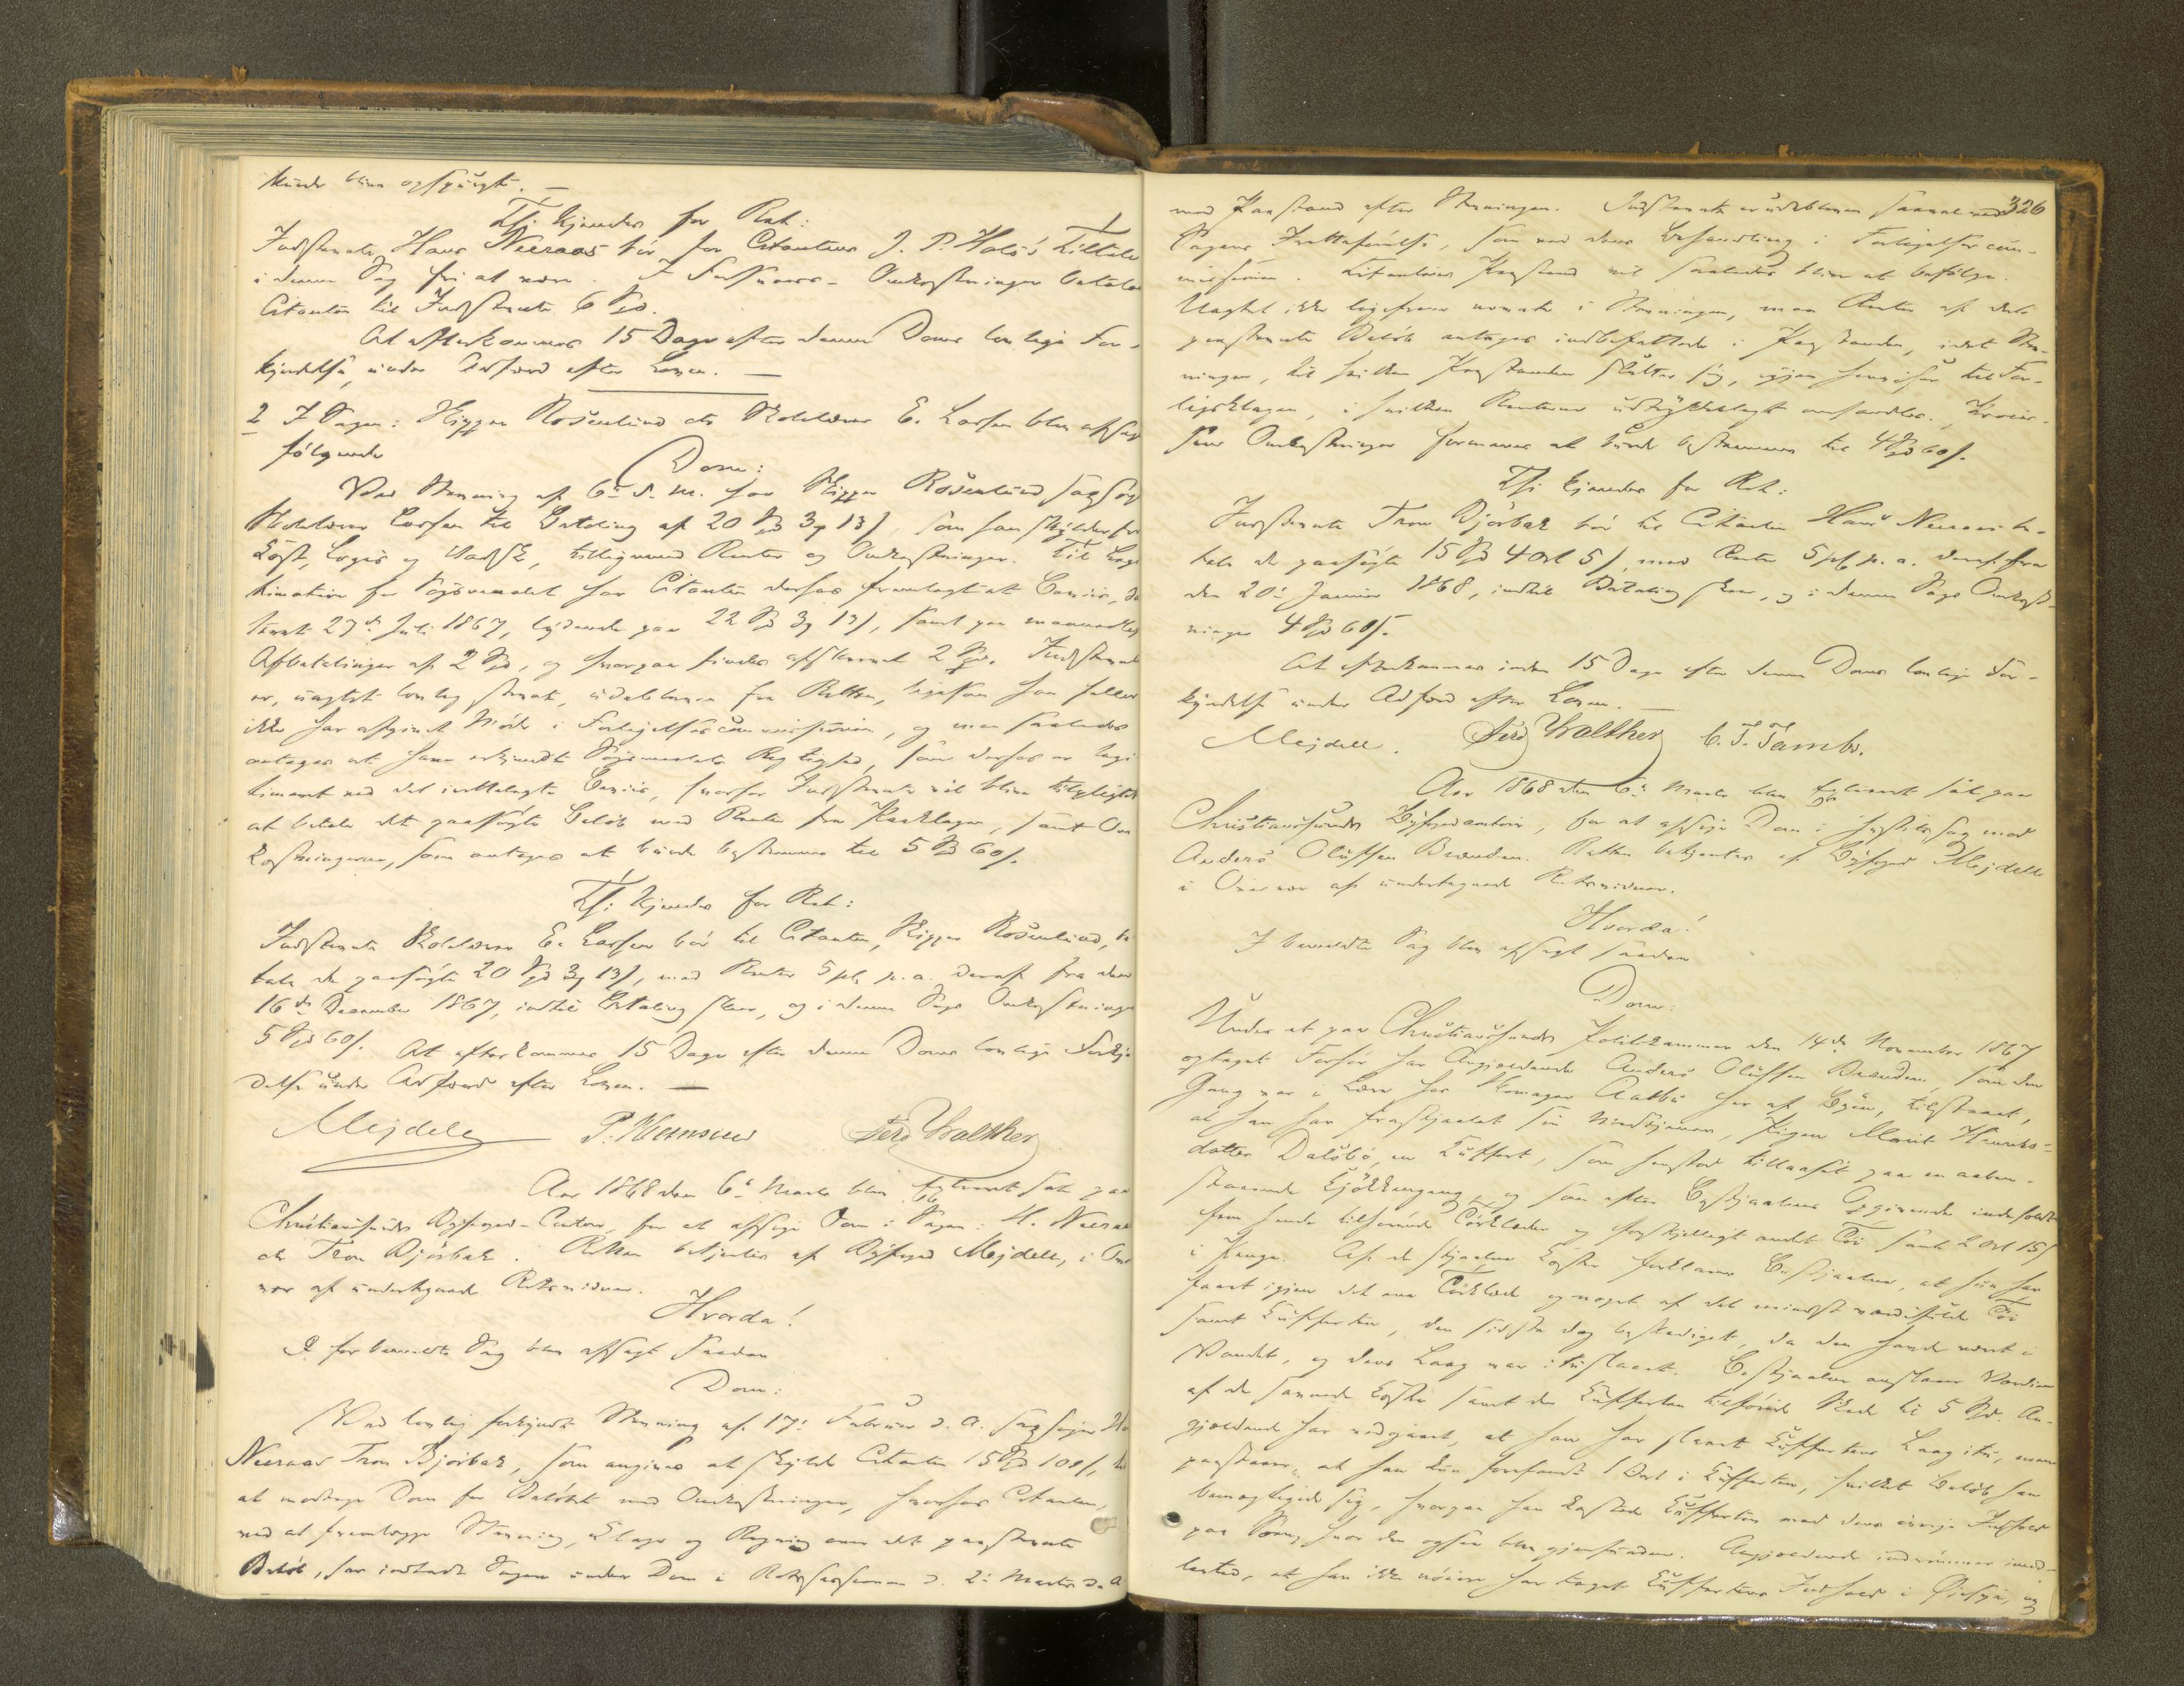 kunde blive opspurgt. —
Thi kjendes for Ret:
Indstevnte Hans Neeraas bør for Citanten J. P. Holö's Tiltale
i denne Sag fri at være. I Omkostninger betaler
Citanten til Indstevnte 6 Spd.
At efterkommes 15 Dage efter denne Doms lovlige For-
kyndelse, under Adfærd efter Loven. —
2 I Sagen: Skipper Rosenlund ctr Skoelærer E. Larsen blev afsagt
følgende
Dom:
Ved Stevning af 6te d. M. har Skipper Rosenlund sagsøgt
Larsen til Betaling af 20 Spd 3 13 s, som han skylder for
Kost, Logis og Vadsk, tilligemed Renter og Omkostninger. Til Legi
timation for Søgsmaalet har Citanten derhos fremlagt et Beviis, da
teret 27de Juli 1867, lydende paa 22 Spd 3 13 s, samt paa maanedlige
Afbetalinger af 2 Spd, og hvorpaa findes afskrevet 2 Spd. Indstevnte
er, uagtet lovlig stevnt, udebleven fra Retten, ligesom han heller
ikke har afgivet Møde i Forligelsescommissionen, og maa saaledes
antages at have erkjendt Søgsmaalets Rigtighed, som derhos er legi
timeret ved det irettelagte Beviis, hvorfor Indstevnte vil blive tilpligtet
at betale det paasøgte Beløb med Renter fra Forliksklagen, samt Om
kostningerne, som antages at burde bestemmes til 5 Spd 60 s.
Thi kjendes for Ret:
Indstevnte E. Larsen bør til Citanten, Skipper Rosenlund, be
tale de paasøgte 20 Spd 3 13 s, med Renter 5 pCt p. a. deraf fra den
16de December 1867, indtil Betaling skeer, og i denne Sags Omkostninger
5 Spd 60 s. At efterkommes 15 Dage efter denne Doms lovlige Forkyn
delse under Adfærd efter Loven. —
Mejdell Ferd Walther
Aar 1868 den 6te Marts blev Extraret sat paa
Christianssunds Byfoged-Contor, for at afsige Dom i Sagen: H. Neeraas
ctr Tron Bjørbæk. Retten betjentes af Byfoged Mejdell, i Over
vær af undertegnede Retsvidner.
Hvorda!
I forbemeldte Sag blev afsagt saadan
Dom:
Ved lovlig forkyndt Stevning af 17de Februar d. A. sagsøger Hans
Neeraas Tron Bjørbæk, som angives at skylde Citanten 15 Spd 101 s, til
at modtage Dom for Beløbet med Omkostninger, hvorhos Citanten,
ved at fremlægge Stevning, Klage og Regning over det paastevnte
Beløb, har indladt Sagen under Dom i Retssessionen d. 2den Marts d. A
326
med Paastand efter Stevningen. Indstevnte er udebleven saavel ved
Sagens Iretteførelse, som ved dens Behandling i Forligelsescom-
missionen. Citantens Paastand vil saaledes blive at befølge.
Uagtet ikke ligefrem nevnte i Stevningen, maa Renter af det
paastevnte Beløb antages indbefattede i Paastanden, idet Stev-
ningen, til hvilken Paastanden slutter sig, igjen henviser til For-
ligsklagen, i hvilken Renterne udtrykkeligt omhandles. Proces-
sens Omkostninger formenes at burde bestemmes til 4 Spd 60 s.
Thi kjendes for Ret:
Indstevnte Tron Bjørbæk bør til Citanten Hans Neeraas be-
tale de paasøgte 15 Spd 4 Ort 5 s, med Renter 5 pCt p. a. deraf fra
den 20de Januar 1868, indtil Betaling skeer, og i denne Sags Omkost-
ninger 4 Spd 60 s.
At efterkommes inden 15 Dage efter denne Doms lovlige For-
kyndelse under Adfærd efter Loven. —
Mejdell. Ferd Walther C. T. Tambs.
Aar 1868 den 6te Marts blev Extraret sat paa
Christianssunds Byfogedcontoir, for at afsige Dom i Justitssag mod
Anders Olufsen Brænden. Retten betjentes af Byfoged Mejdell
i Overvær af undertegnede Retsvidner.
Hvorda!
I bemeldte Sag blev afsagt saadan
Dom:
Under et paa Christianssunds Politikammer den 14de November 1867
optaget Forhør har Angjældende Anders Olufsen Brænden, som den
Gang var i Lære hos Skomager Aalbu her af Byen, tilstaaet,
at han har frastjaalet sin Medtjener, Pigen Marit Henriks-
datter Dalsbø, en Kuffert, som henstod tillaaset paa en aaben-
staaende Kjøkkengang, og som efter Bestjaalnes Opgivende indeholdt
fem hende tilhørende Tørklæder og forskjelligt andet Tøi samt 2 Ort 15 s
i Penge. Af de stjaalne Koster forklarer Bestjaalne, at hun har
faaet igjen det ene Tørklæde og noget af det mindst værdifulde Tøi
samt Kufferten, den sidste dog beskadiget, da den havde været i
Vandet, og dens Laag var ituslaaet. Bestjaalne anslaaer Værdien
af de savnede Koster samt den Kufferten tilføiede Skade til 5 Spd. An-
gjældende har vedgaaet, at han har slaaet Kuffertens Laag itu, men
paastaaer, at han kun forefandt 1 Ort i Kufferten, hvilket Beløb han
bemægtigede sig, hvorpaa han kastede Kufferten med dens øvrige Indhold
paa Søen, hvor den ogsaa blev gjenfunden. Angjældende indrømmer imid-
lertid, at han ikke nøiere har taget Kuffertens Indhold i Øiesyn, og